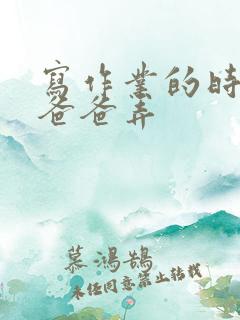 寫作業的時
爸爸弄
慕鴻鵠
未任同意禁止轉載